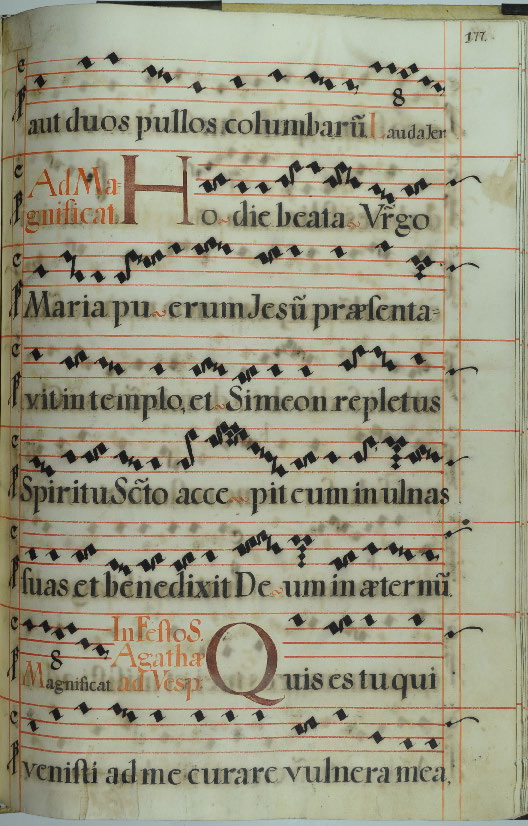 177.
aut duos pullos columbarũ. Lauda Jer
8
Ad Ma=
gnificat. Hodie beata Vr̃go
Maria puerum Jesũ præsenta=
vit in templo, et Simeon repletus
Spiritu Sc̃to accepit eum in ulnas
suas et benedixit Deum in æternũ.
In Festo S.
8 Agathæ
Magnificat ad Vesp. Quis es tu qui
venisti ad me curare vulnera mea,